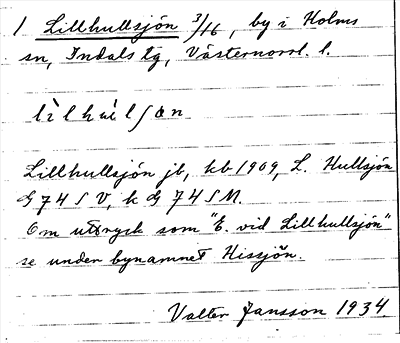 1 Lillhullsjön 3/16, by i Holms
sn, Indals tg, Västernorrl. l.
lìlhúlʃøn
Lillhullsjön jb, kb 1909, L. Hullsjön
G 74 S V, k G 74 S M.
Om uttryck som "E. vid Lillhullsjön"
se under bynamnet Hissjön.
Valter Jansson 1934